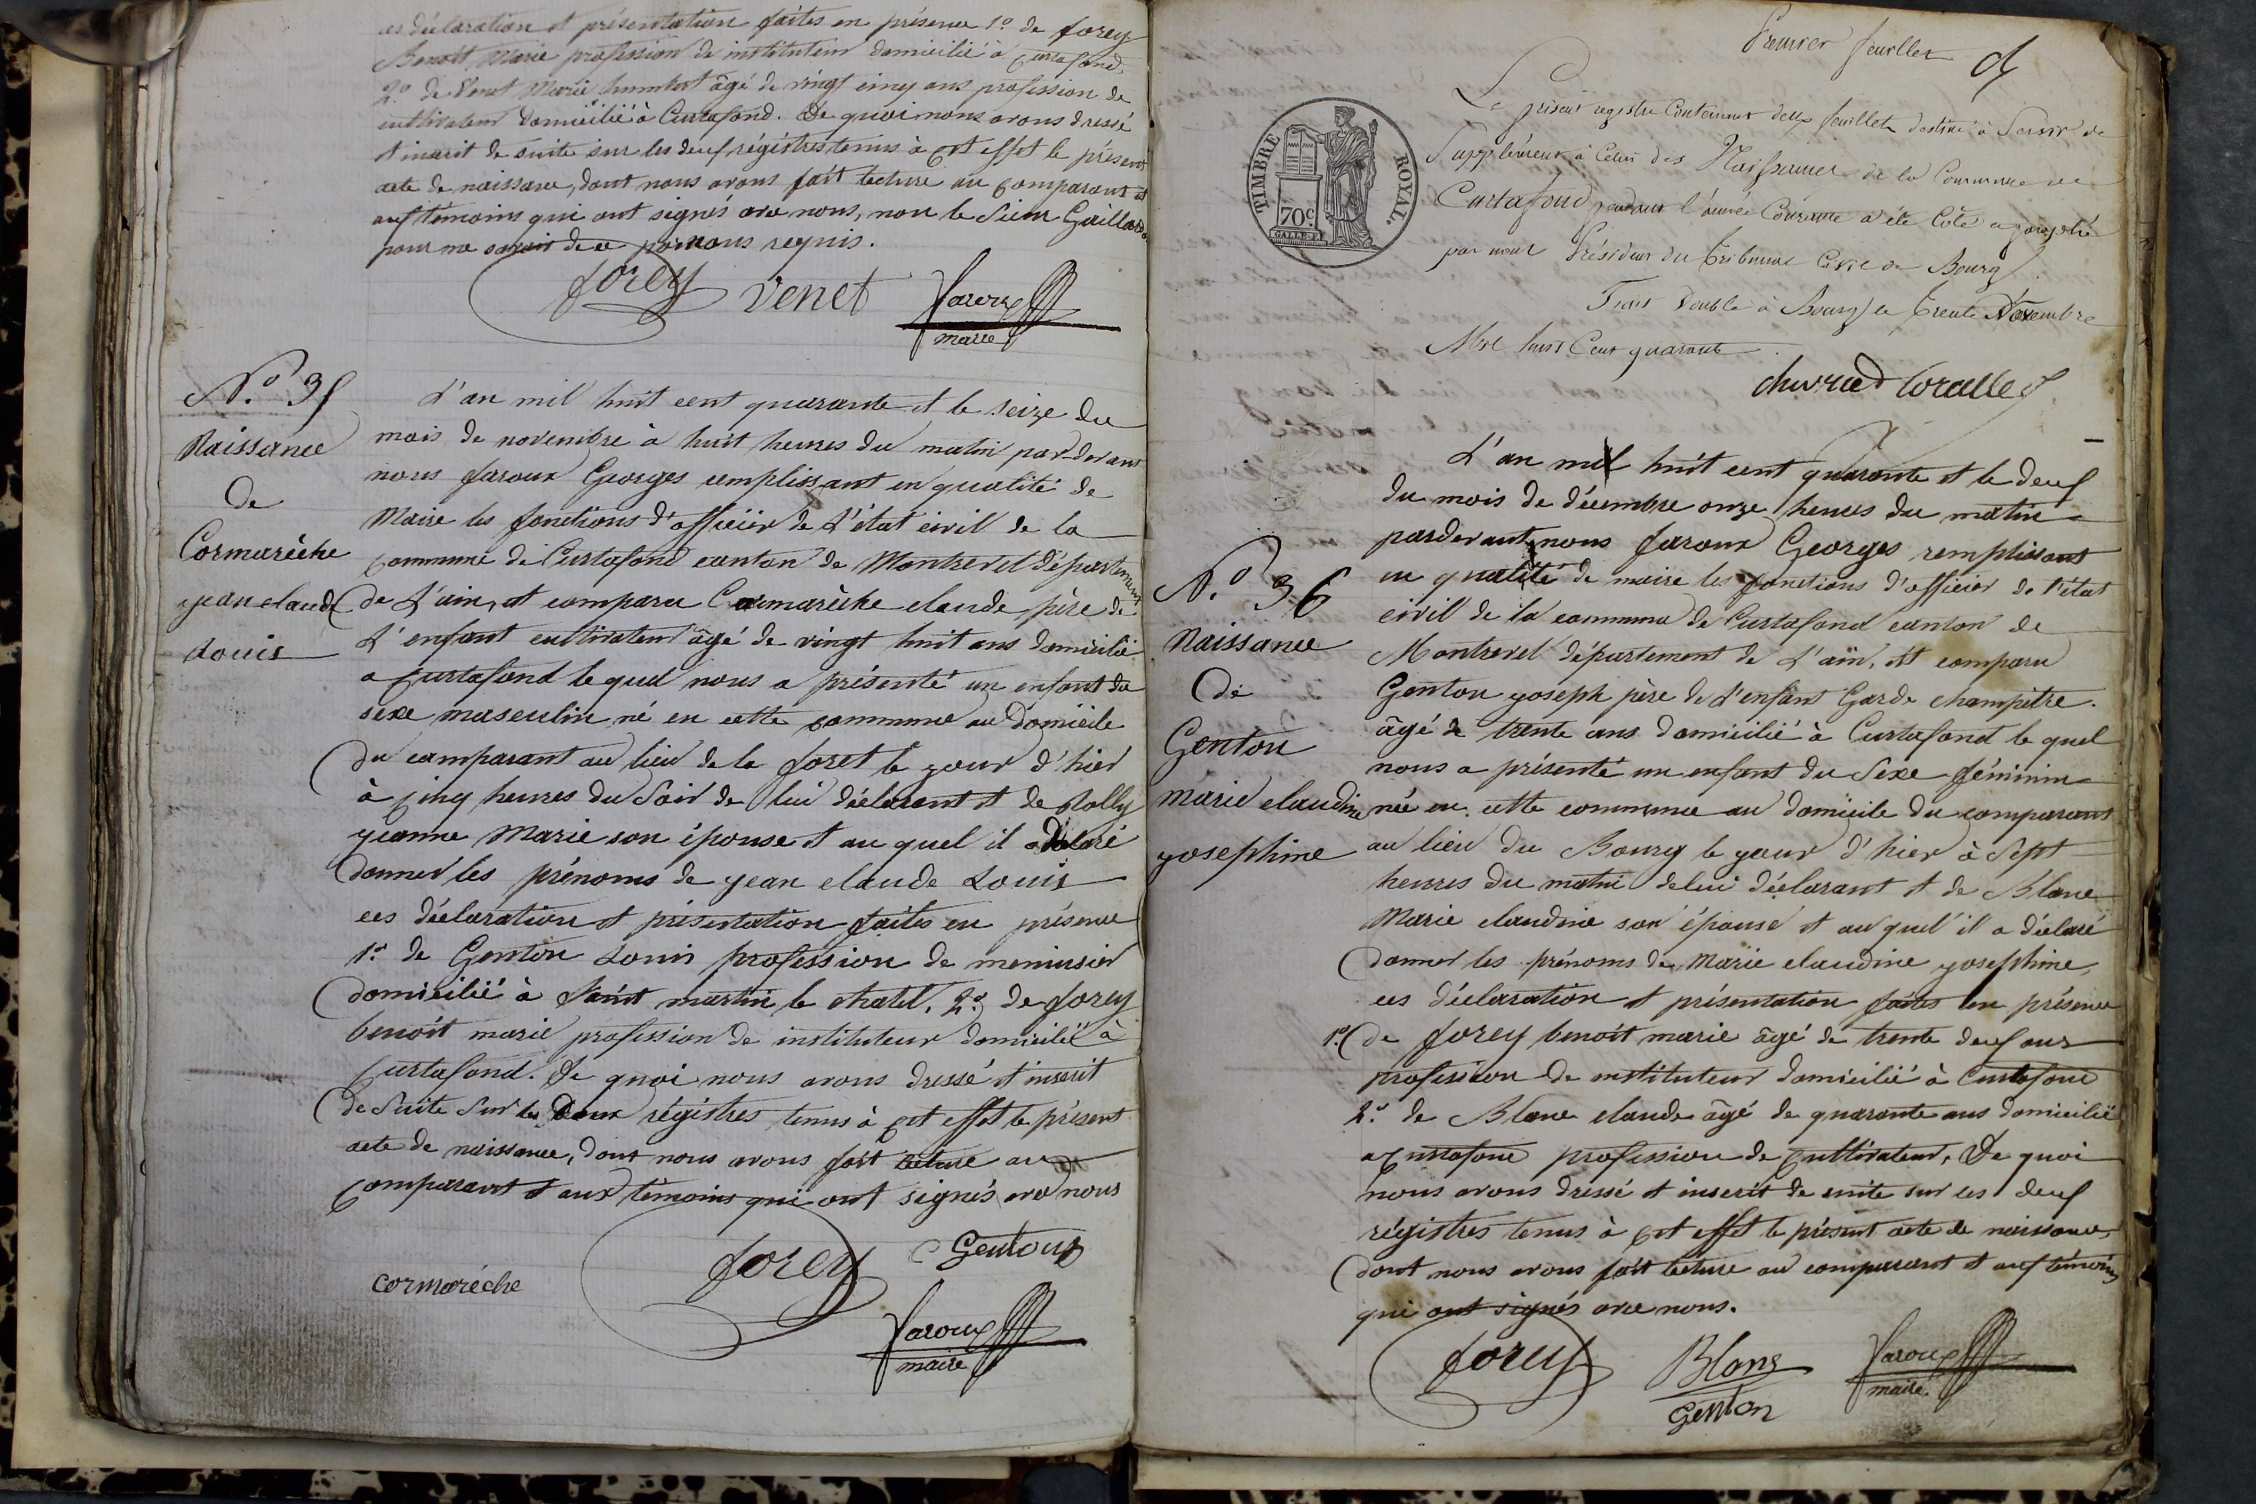 ces déclaration et présentation faites en présence 1.° de forey
Benoit Marie profession de instituteur domicilié à Curtafond.
2.° de Venet Marie humbert âgé de vingt cinq ans profession de
cultivateur domicilié à Curtafond. De quoi nous avons dressé
et inscrit de suite sur les deux régistres tenus à cet effet le présent
acte de naissance, dont nous avons fait lecture au comparant et
aux témoins qui ont signés avec nous, non le Sieur Gaillard
pour ne savoir de ce par nous requis.
forey venet faroux
maire
N.° 35
Naissance
De
Cormarèche
jean claude
Louis
L'an mil huit cent quarante et le seize du
mois de novembre à huit heures du matin pardevant
nous faroux Georges remplissant en qualité de
Maire les fonctions d'officier de L'état civil de la
commune de Curtafond canton de Montrevel département
de L'ain, et comparu Cormarèche claude père de
L'enfant cultivateur âgé de vingt huit ans domicilié
a Curtafond le quel nous a présenté un enfant du
sexe masculin né en cette commune au domicile
du comparant au lieu de la foret le jour d'hier
à cinq heures du Soir de lui déclarant et de
jeanne Marie son épouse et au quel il a déclaré
donner les prénoms de jean claude Louis
ces déclaration et présentation faites en présence
1.° de Genton Louis profession de menuisier
domicilié à Saint martin le chatel. 2.° de forey
benoit marie profession de instituteur domicilié à
Curtafond. De quoi nous avons dressé et inscrit
de Suite Sur les Deux régistres tenus à cet effet le présent
acte de naissance, dont nous avons fait lecture au
comparant et aux témoins qui ont signés avec nous
cormaréche forey Genton
faroux
maire
Premier feuillet
Le présent registre Contenant deux feuillets destiné à Servir de
Supplément à Celui des Naissances de la Commune de
Curtafond pendant l'année Courante a été Coté et paraphé
par nous Président du Tribunal Civil de Bourg
TIMBRE ROYAL.
70.C
Fait double à Bourg le trente Novembre
Mil huit Cent quarante
L'an mil huit cent quarante et le deux
du mois de décembre onze heures du matin
pardevant nous faroux Georges remplissant
en qualité de maire les fonctions d'officier de l'état
civil de la commune de Curtafond canton de
Montrevel département de L'ain, et comparu
Genton joseph père de L'enfant Garde champitre.
âgé de trente ans domicilié à Curtafond le quel
nous a présenté un enfant du Sexe féminin
née en cette commune au domicile du comparant
au lieu du Bourg le jour d'hier à Sept
heures du matin de lui déclarant et de Blanc
Marie claudine son épouse et au quel il a déclaré
donner les prénoms de Marie claudine josephine
ces déclaration et présentation faites en présence
1.° de forey benoit marie âgé de trente deux ans
profession de instituteur domicilié à Curtafond
2.° de Blanc claude âgé de quarante ans domicilié
a Curtafond profession de Cultivateur, De quoi
nous avons dressé et inscrit de suite sur les deux
régistres tenus à cet effet le présent acte de naissance,
dont nous avons fait lecture au comparant et aux témoins
qui ont signés avec nous.
N.° 36
Naissance
De
Genton
marie claudine
josephine
forey Blanc faroux
Genton maire